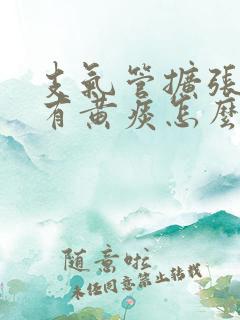 支氣管擴張
有黃痰怎麼
随意啦
未经同意禁止转载